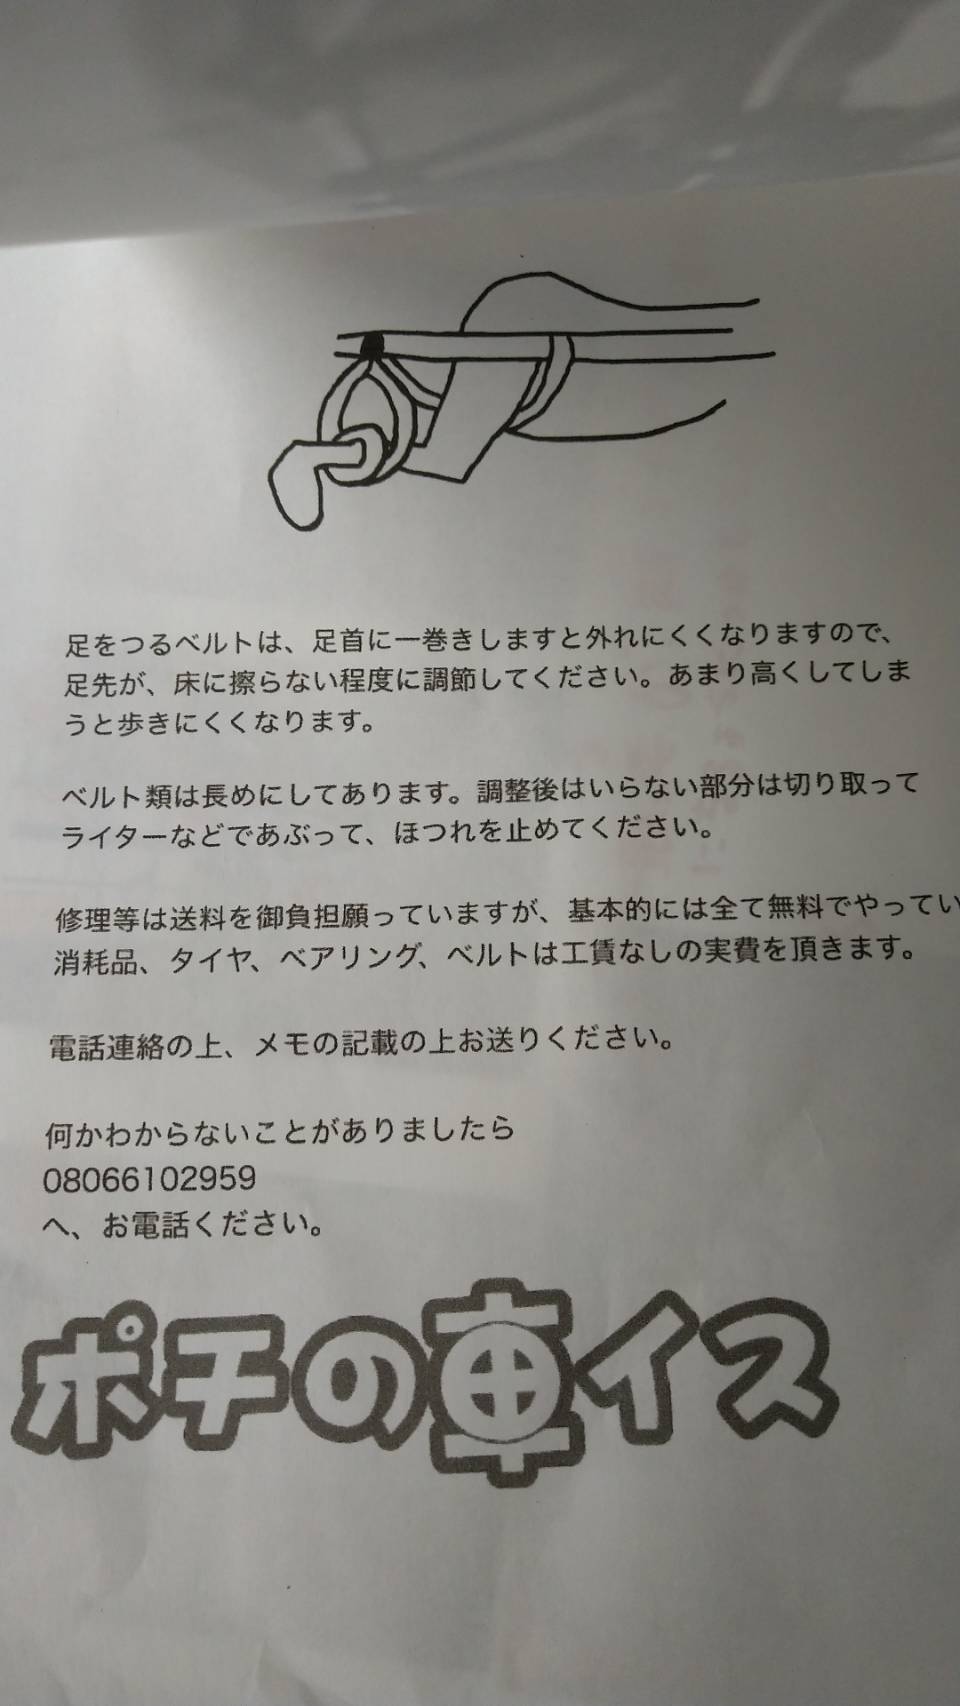 足をつるベルトは、足首に一巻きしますと外れにくくなりますので、
足先が、床に擦らない程度に調節してください。あまり高くしてしま
うと歩きにくくなります。
ベルト類は長めにしてあります。調整後はいらない部分は切り取って
ライターなどであぶって、ほつれを止めてください。
修理等は送料を御負担願っていますが、基本的には全て無料でやってい
消耗品、タイヤ、ベアリング、ベルトは工賃なしの実費を頂きます。
電話連絡の上、メモの記載の上お送りください。
何かわからないことがありましたら
08066102959
へ、お電話ください。
ポチの車イス